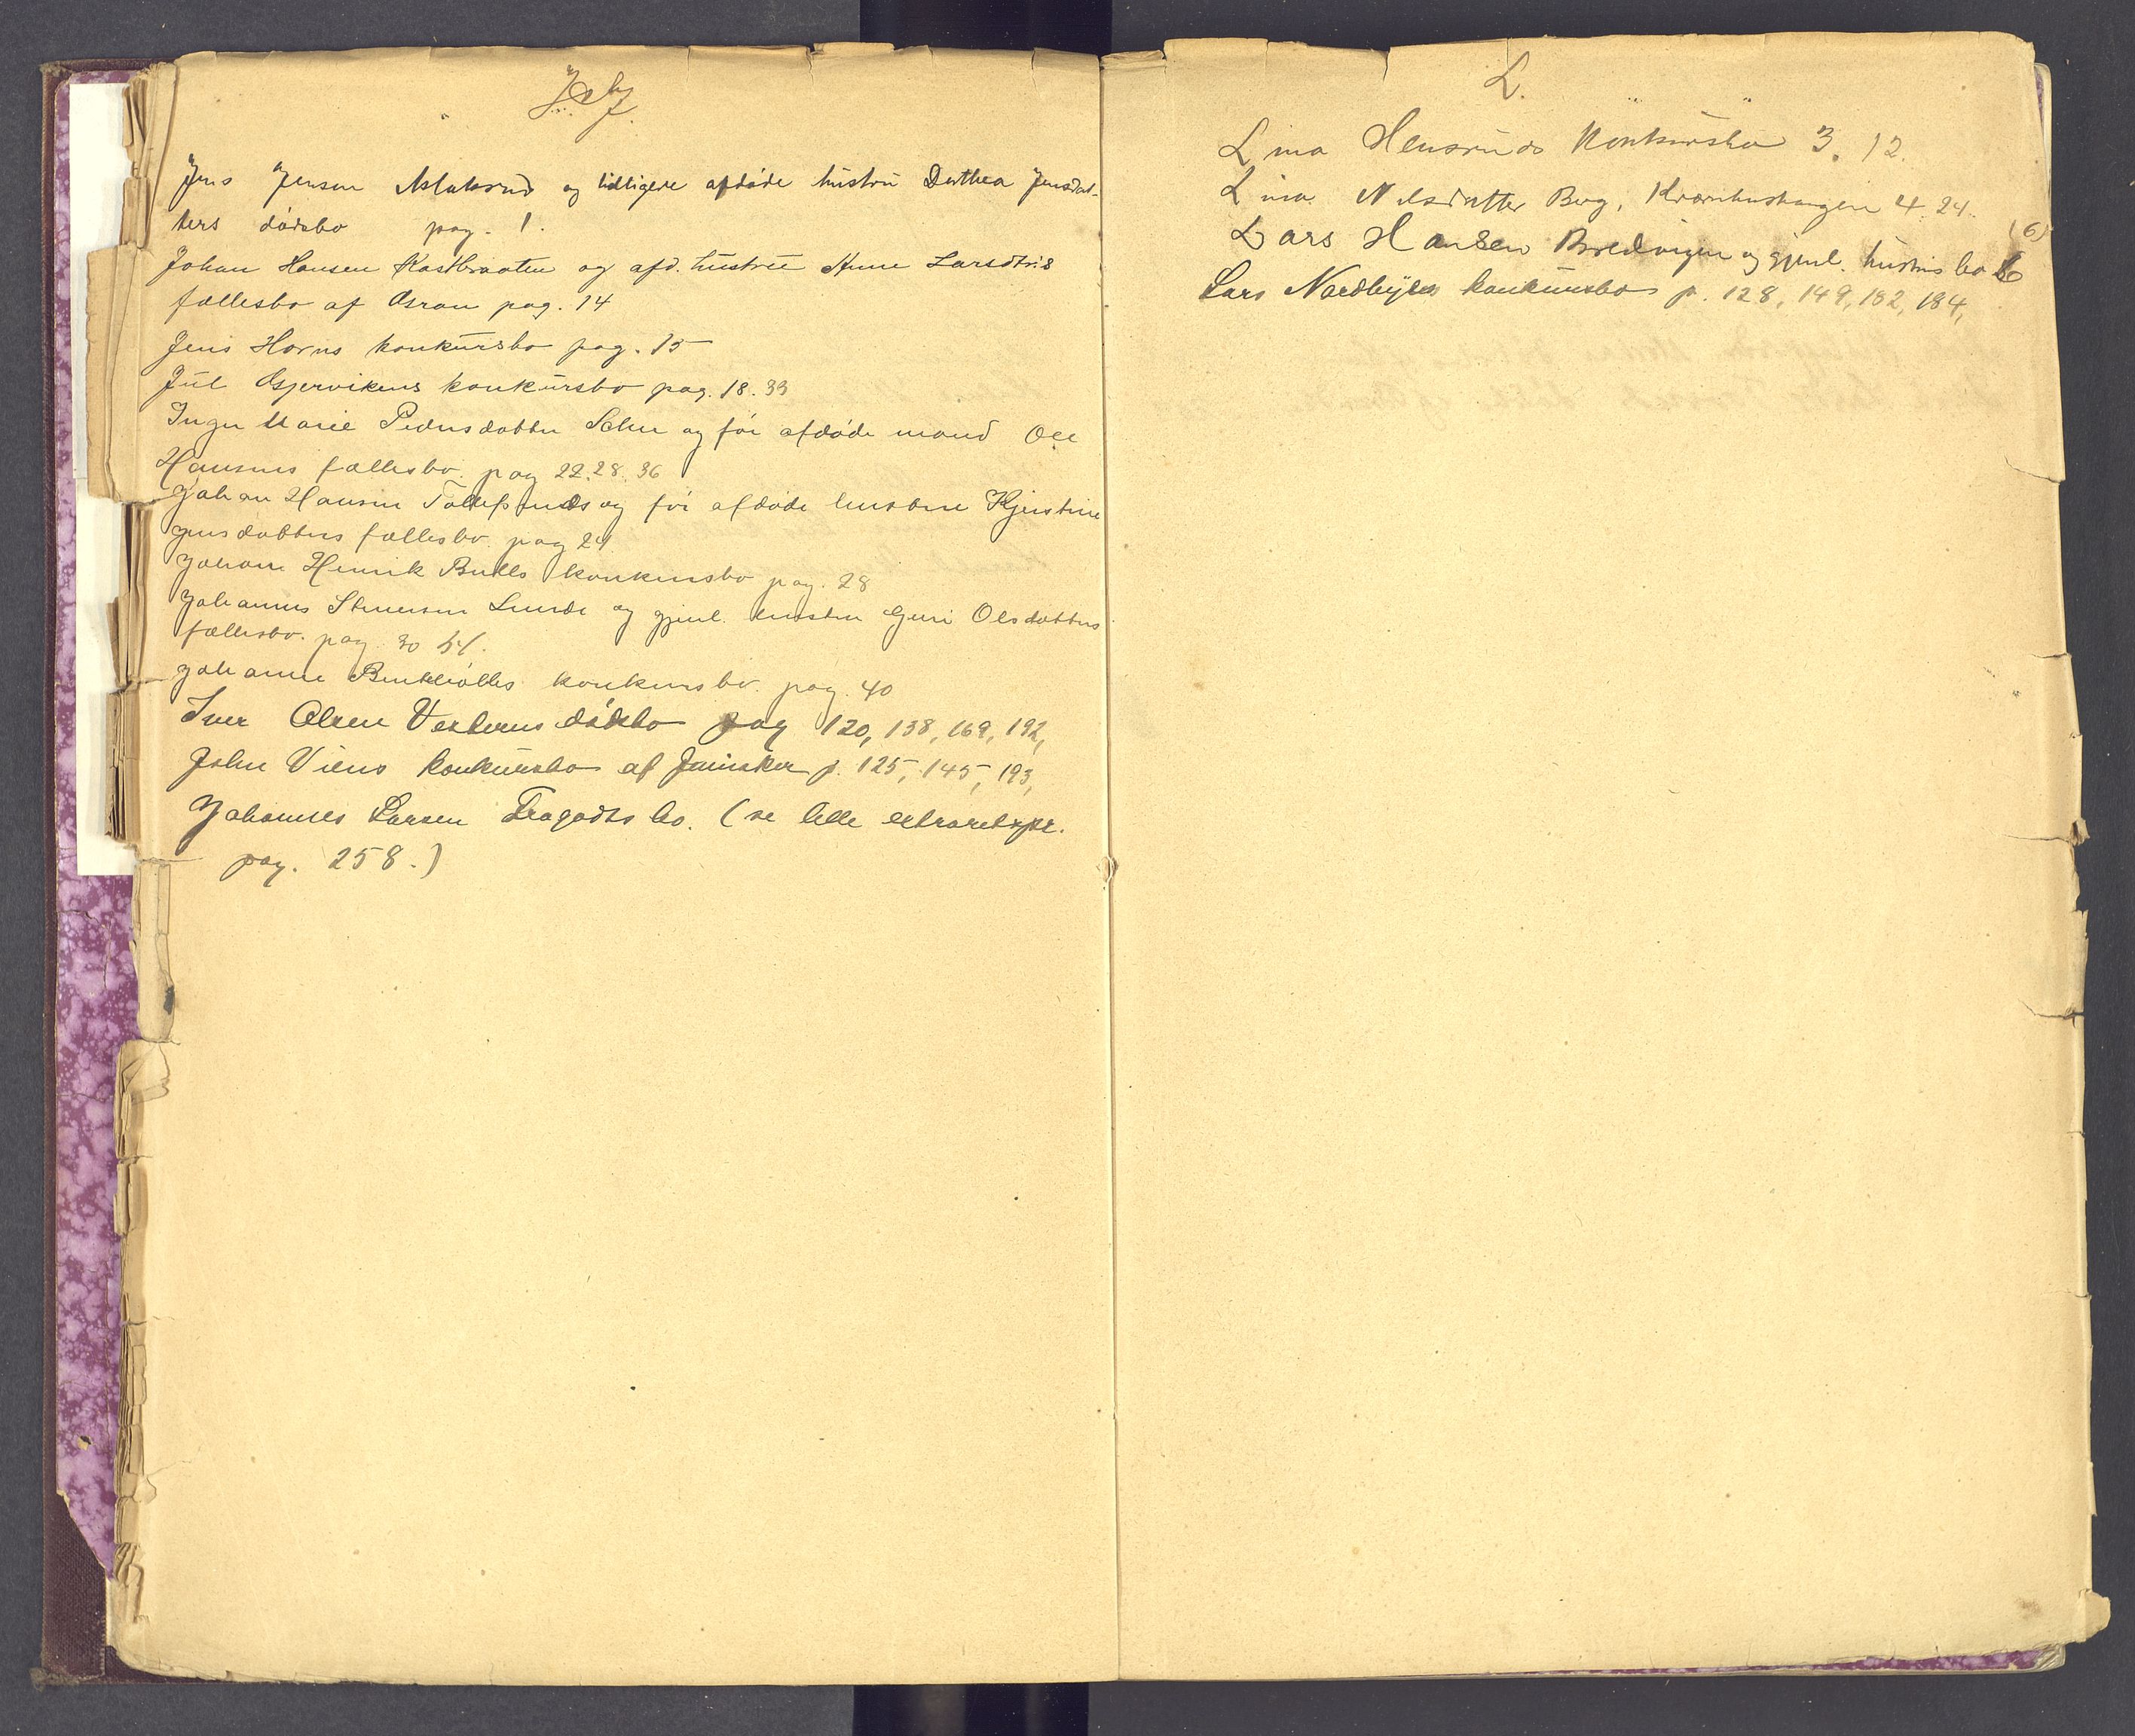 J & J.
Jens Jensen Aslaksrud og tidligere afdøde hustru Dorthea Jensdat-
ters dødsbo pag. 1.
Johan Hansen Kastbraaten og afd. hustru Anne Larsdtrs
fællesbo af Asran pag. 14
Jens Horns konkursbo pag. 15
Jul Gjervikens konkursbo pag. 18. 33
Inger Marie Pedersdatter og før afdøde mand Ole
Hansens fællesbo. pag 22. 28. 36
Johan Hansen Tollefsruds og før afdøde hustru Kjerstine
Jensdatters fællesbo. pag 24
Johan Henrik Bulls konkursbo pag. 28
Johannes Stenersen Lunde og gjenl. hustru Guri Olsdatters
fællesbo. pag. 30 54.
Johanne konkursbo. pag. 40
Iver Olsen Vesterns dødsbo pag 120, 138, 169, 192,
John Viens konkursbo af Jevnaker p. 125, 145, 193,
Johannes Larsen bo. (se lille extraretspr.
pag. 258.)
L.
Lina Hensruds Konkursbo 3. 12.
Lina Nilsdatter Berg, 4. 24.
(6)
Lars Hansen Bredvigen og gjenl. hustrus bo 6
Lars Nordbyes konkursbo p. 128, 149, 182, 184,